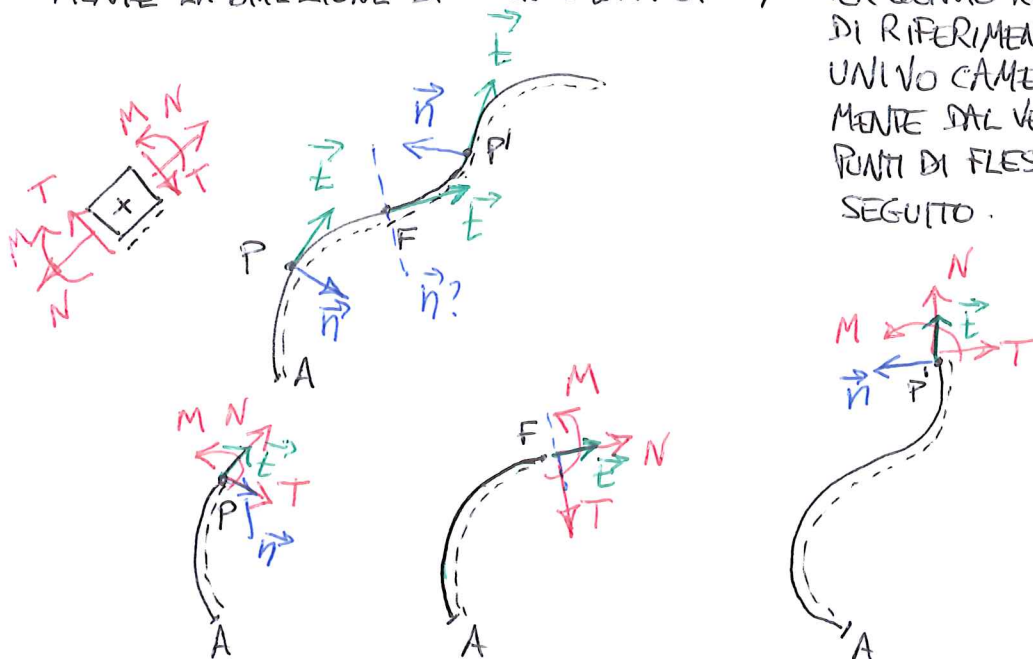 DI RIFERIMEN
UNIVOCAMEN
MENTE DAL VE
PUNTI DI FLES
SEGUITO.
t
n
P'
M N
T
T
M
N
t
t
F
P
n
n?
A
N
M
t
T
n
P'
M N
t
T
P
n
A
M
F
N
t
T
A
A